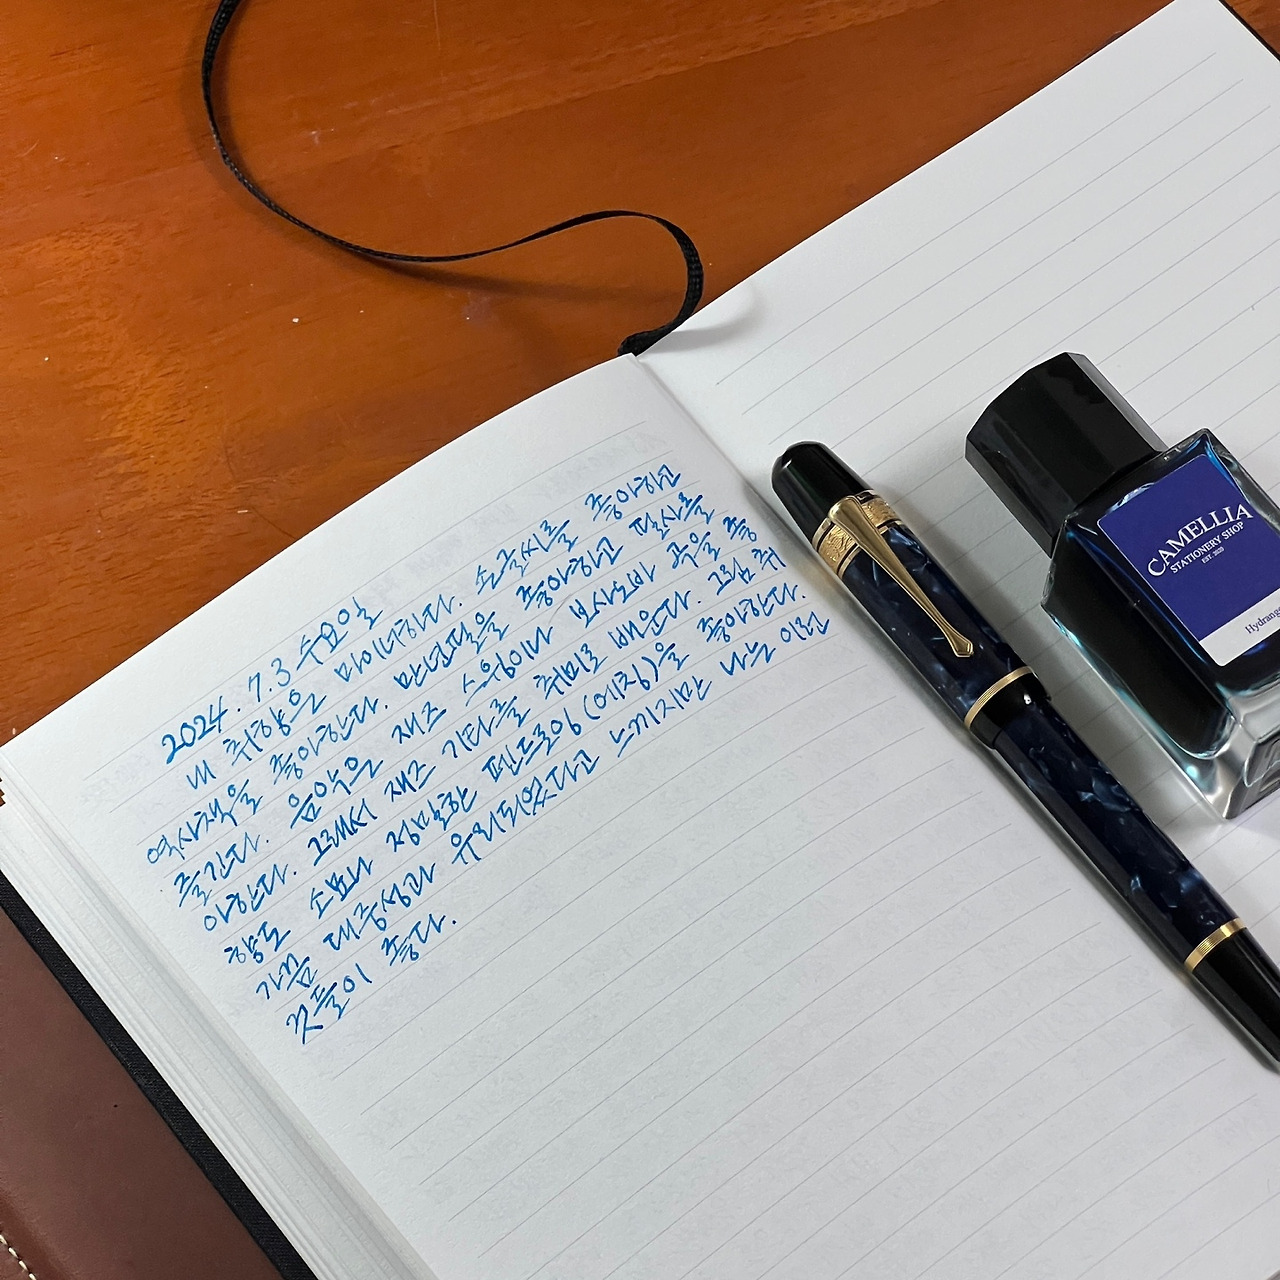 2024. 7. 3 수요일
내 취향은 마이너하다. 손글씨를 좋아하고
역사책을 좋아한다. 만년필을 좋아하고 필사를
즐긴다. 음악은 재즈 스윙이나 보사노바 곡을 좋
아한다. 그래서 재즈 기타를 취미로 배운다. 그림 취
향도 소묘나 정밀한 펜드로잉(에칭)을 좋아한다.
가끔 대중성과 유리되었다고 느끼지만 나는 이런
것들이 좋다.
CAMELLIA
STATIONERY SHOP
EST. 2020